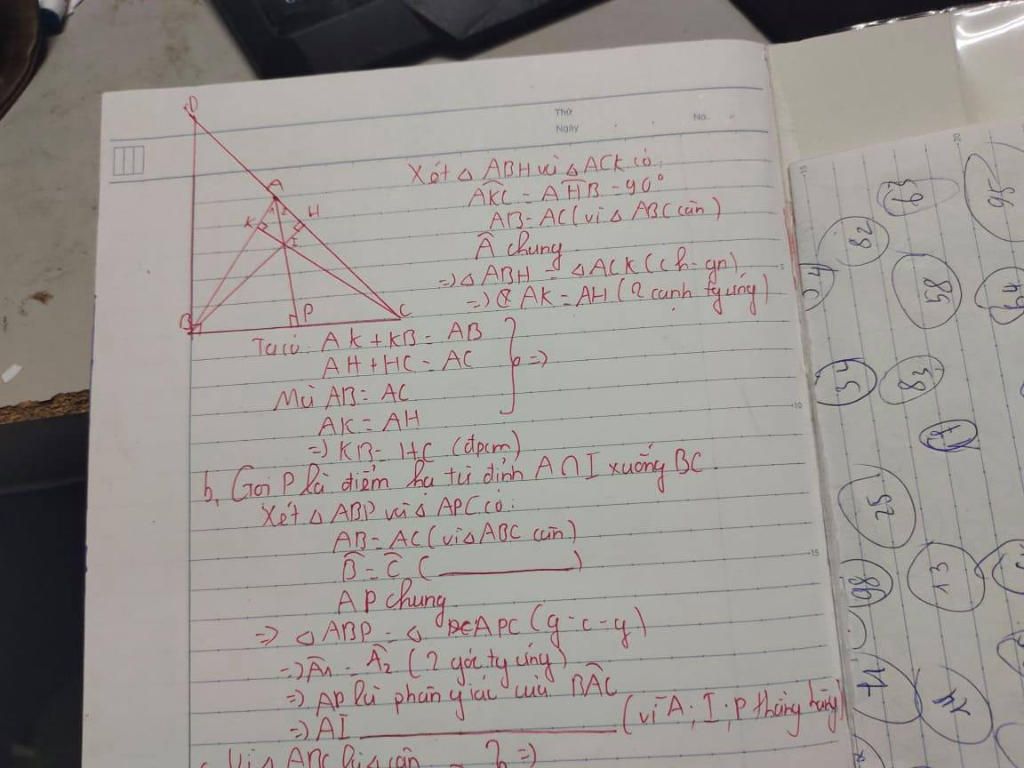 Thứ
Ngày
No.
D
A
1 2
K
H
I
B
P
C
Xét △ ABH và △ ACK có:
AKC = AHB = 90°
AB = AC (vì △ ABC cân)
Â chung
=> △ ABH = △ ACK (ch-gn)
=> AK = AH (2 cạnh tg ứng)
Ta có: AK + KB = AB
AH + HC = AC
} =>
Mà AB = AC
AK = AH
=> KB = HC (đpcm)
b, Gọi P là điểm hạ từ đỉnh A∩I xuống BC.
Xét △ ABP và △ APC có:
AB = AC (vì △ ABC cân)
B̂ = Ĉ ( ______ )
AP chung
=> △ ABP = △ APC (g-c-g)
=> Â1 = Â2 (2 góc tg ứng)
=> AP là phân giác của BAC
=> AI ______ (vì A; I; P thẳng hàng)
Vì △ ABC là △ cân } =>
10
15
20
63
95
82
58
54
34
83
7
25
98
13